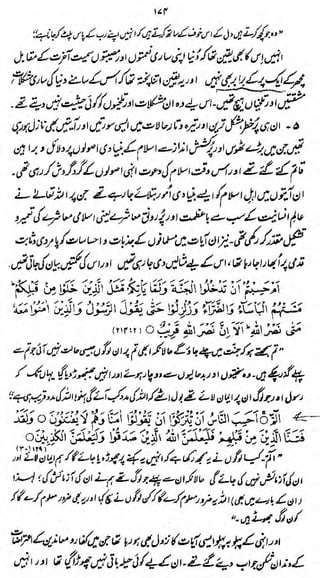 ۱۷۴
"وہ جو کچھ کرتے ہیں دل کے اس خوف کے ساتھ کرتے ہیں کہ انہیں اپنے رب کے پاس پلٹ کر جانا ہے؟"
انہیں اس کا بھی یقین تھا کہ دنیا اپنی ساری نعمتوں اور مصیبتوں سمیت آخرت کے مقابل
مچھر کے ایک پر کے برابر بھی نہیں اور یہ یقین اتنا پختہ تھا کہ اس کے سامنے دنیا کی ساری مشکلیں
مشقتیں اور تلخیاں ہیچ تھیں۔ اس لیے وہ ان مشکلات اور تلخیوں کو کوئی حیثیت نہیں دیتے تھے۔
۵ - ان ہی پُر خطر مشکل ترین اور تیرہ و تار حالات میں ایسی سورتیں اور آیتیں بھی نازل ہو رہی
تھیں جن میں بڑے ٹھوس اور پُر کشش انداز سے اسلام کے بنیادی اصولوں پر دلائل و براہین
قائم کئے گئے تھے اور اس وقت اسلام کی دعوت انہی اصولوں کے گرد گردش کر رہی تھی۔
ان آیتوں میں اہل اسلام کو ایسے بنیادی امور بتلائے جا رہے تھے جن پر اللہ تعالیٰ نے
عالم انسانیت کے سب سے باعظمت اور پُر رونق معاشرے یعنی اسلامی معاشرے کی تعمیر و
تشکیل مقدر کر رکھی تھی۔ نیز ان آیات میں مسلمانوں کے جذبات و احساسات کو پامردی و ثابت
قدمی پر ابھارا جا رہا تھا، اس کے لیے مثالیں دی جا رہی تھیں اور اس کی حکمتیں بیان کی جاتی تھیں
اَمْ حَسِبْتُمْ اَنْ تَدْخُلُوا الْجَنَّةَ وَلَمَّا يَاْتِكُمْ مَّثَلُ الَّذِيْنَ خَلَوْا مِنْ قَبْلِكُمْ
مَسَّتْهُمُ الْبَاْسَاءُ وَالضَّرَّاءُ وَزُلْزِلُوْا حَتّٰى يَقُوْلَ الرَّسُوْلُ وَالَّذِيْنَ اٰمَنُوْا مَعَهٗ
مَتٰى نَصْرُ اللّٰهِ اَلَا اِنَّ نَصْرَ اللّٰهِ قَرِيْبٌ ○ (۲۱۴:۲)
"تم سمجھتے ہو کہ جنت میں چلے جاؤ گے حالانکہ ابھی تم پر ان لوگوں جیسی حالت نہیں آئی جو تم سے
پہلے گزر چکے ہیں۔ وہ سختیوں اور بدحالیوں سے دوچار ہوئے اور انہیں جھنجھوڑ دیا گیا یہاں تک کہ
رسول اور جو لوگ ان پر ایمان لائے تھے بول اٹھے کہ اللہ کی مدد کب آئے گی! سنو! اللہ کی مدد قریب ہی ہے؟"
الٓمّٓ ○ اَحَسِبَ النَّاسُ اَنْ يُّتْرَكُوْا اَنْ يَّقُوْلُوْا اٰمَنَّا وَهُمْ لَا يُفْتَنُوْنَ ○ وَلَقَدْ
فَتَنَّا الَّذِيْنَ مِنْ قَبْلِهِمْ فَلَيَعْلَمَنَّ اللّٰهُ الَّذِيْنَ صَدَقُوْا وَلَيَعْلَمَنَّ الْكٰذِبِيْنَ ○
"الٓمّٓ۔ کیا لوگوں نے یہ سمجھ رکھا ہے کہ انہیں یہ کہنے پر چھوڑ دیا جائے گا کہ ہم ایمان لائے اور
ان کی آزمائش نہیں کی جائے گی حالانکہ ان سے پہلے جو لوگ تھے ہم نے ان کی آزمائش کی؛ لہٰذا
(ان کے بارے میں بھی) اللہ یہ ضرور معلوم کرے گا کہ کن لوگوں نے سچ کہا اور یہ بھی ضرور معلوم کرے گا کہ
کون لوگ جھوٹے ہیں۔"
اور انہی کے پہلو بہ پہلو ایسی آیات کا نزول بھی ہو رہا تھا جن میں کفار و معاندین کے اعتراضات
کے دندان شکن جواب دیئے گئے تھے۔ ان کے لیے کوئی حیلہ باقی نہیں چھوڑا گیا تھا اور انہیں